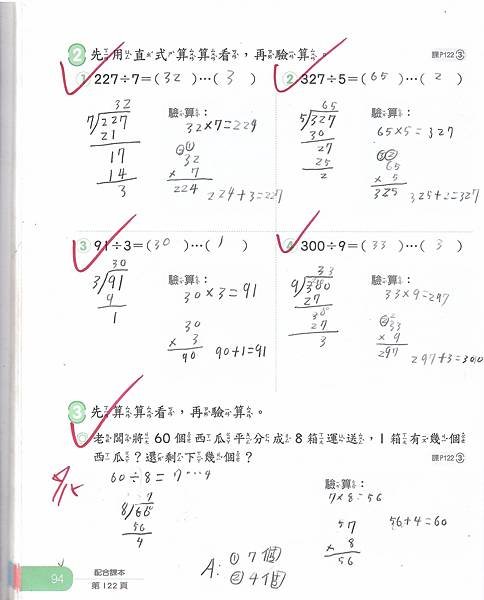 2 先用直式算算看，再驗算。 課P122③
① 227÷7=( 32 )…( 3 )
32
7)227
21
17
14
3
驗算：
32×7=224
32
× 7
224
224+3=227
② 327÷5=( 65 )…( 2 )
65
5)327
30
27
25
2
驗算：
65×5=327
65
× 5
325
325+2=327
③ 91÷3=( 30 )…( 1 )
30
3)91
9
1
驗算：
30×3=91
30
× 3
90
90+1=91
④ 300÷9=( 33 )…( 3 )
33
9)300
27
30
27
3
驗算：
33×9=297
33
× 9
297
297+3=300
3 先算算看，再驗算。
① 老闆將60個西瓜平分成8箱運送，1箱有幾個
西瓜？還剩下幾個？ 課P122③
60÷8=7…4
7
8)60
56
4
驗算：
7×8=56
57
× 8
56
56+4=60
A：① 7個
② 4個
94 配合課本
第122頁